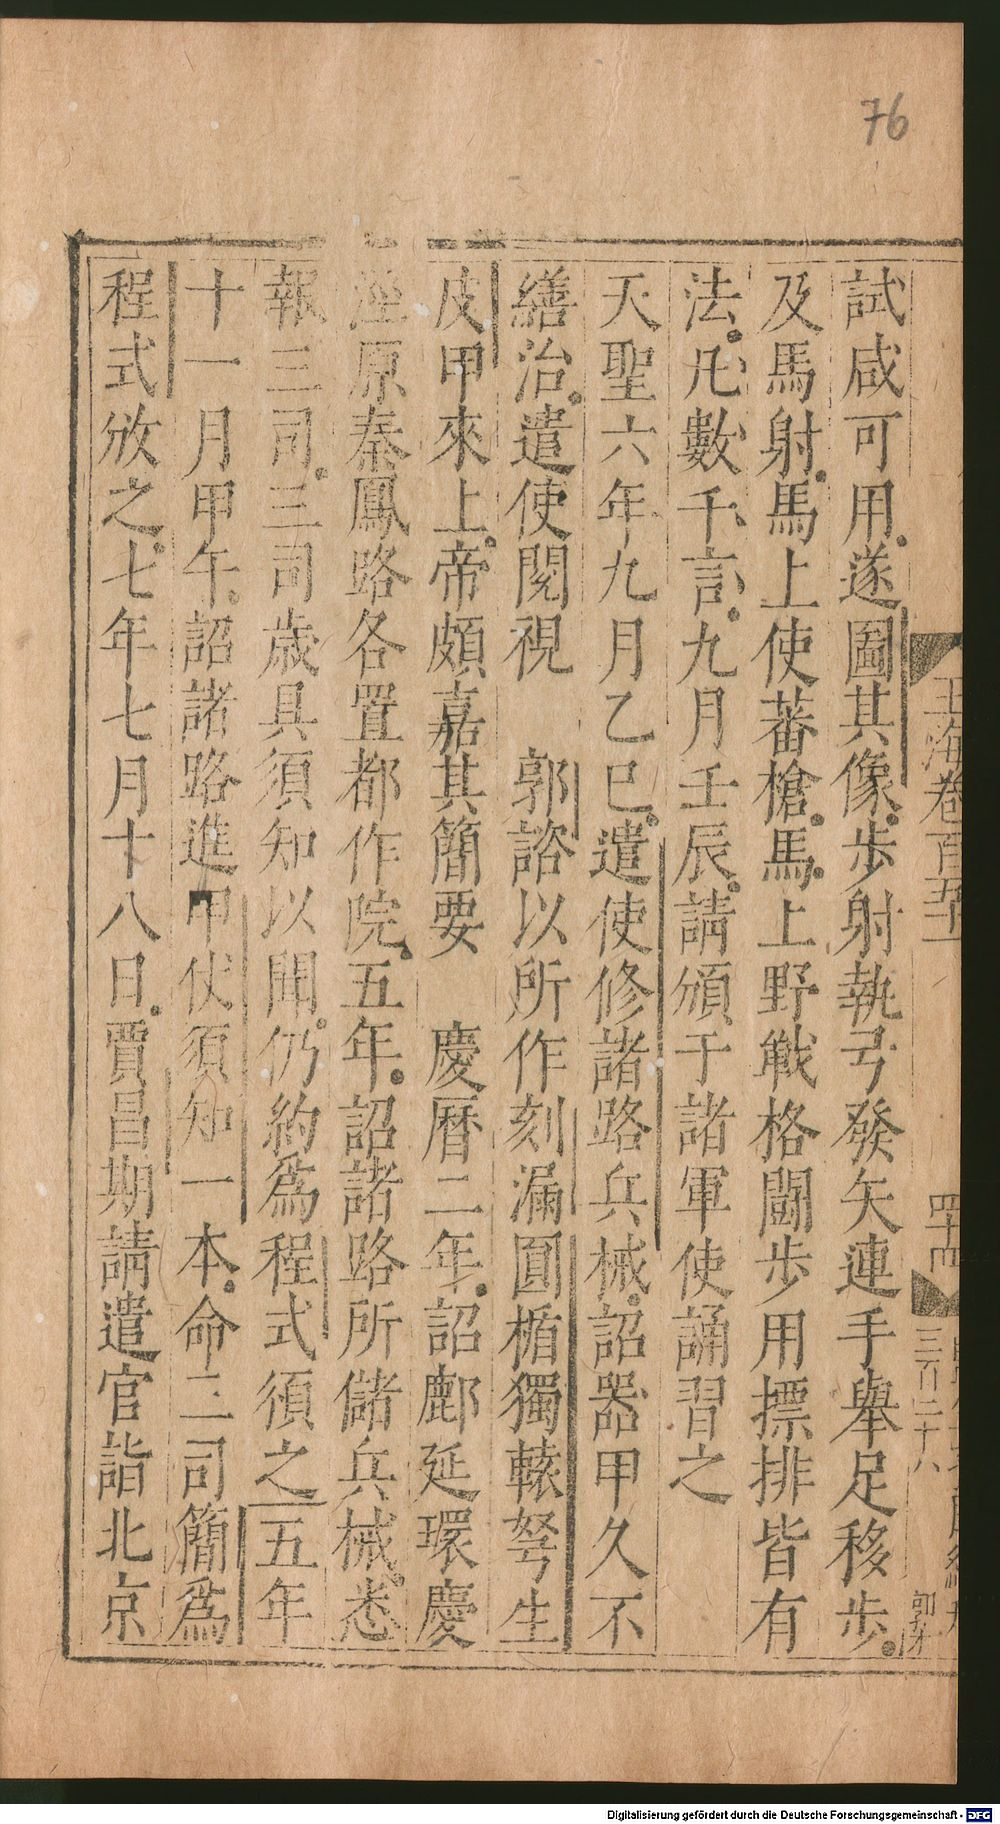 76
試咸可用。遂圖其像。歩射執弓發矢連手舉足移歩。
及馬射。馬上使蕃槍。馬。上野戰格鬪步用摽排皆有
法。凡數千言。九月壬辰。請頒于諸軍使誦習之
天聖六年九月乙巳。遣使修諸路兵械。詔器甲久不
繕治。遣使閱視 郭諮以所作刻漏圓楯獨轅弩生
皮甲來上。帝頗嘉其簡要 慶曆二年。詔鄜延環慶
涇原秦鳳路各置都作院。五年。詔諸路所儲兵械。悉
報三司。三司歲具須知以聞。仍約爲程式須之五年
十一月甲午。詔諸路進甲仗須知一本。命三司簡爲
程式放之。七年七月十八日。賈昌期請遣官詣北京
玉海卷百五十一
四十四
三百二十八
Digitalisierung gefördert durch die Deutsche Forschungsgemeinschaft - DFG